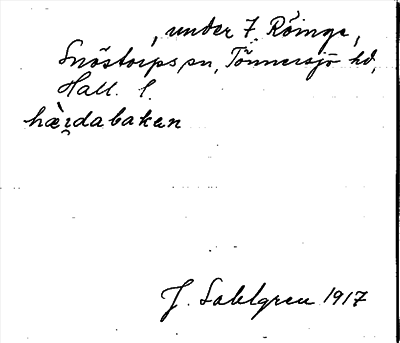 , under 7 Röinge,
Snöstorps sn, Tönnersjö hd,
Hall. l.
hæ̀i̯dabakan
J. Sahlgren 1917